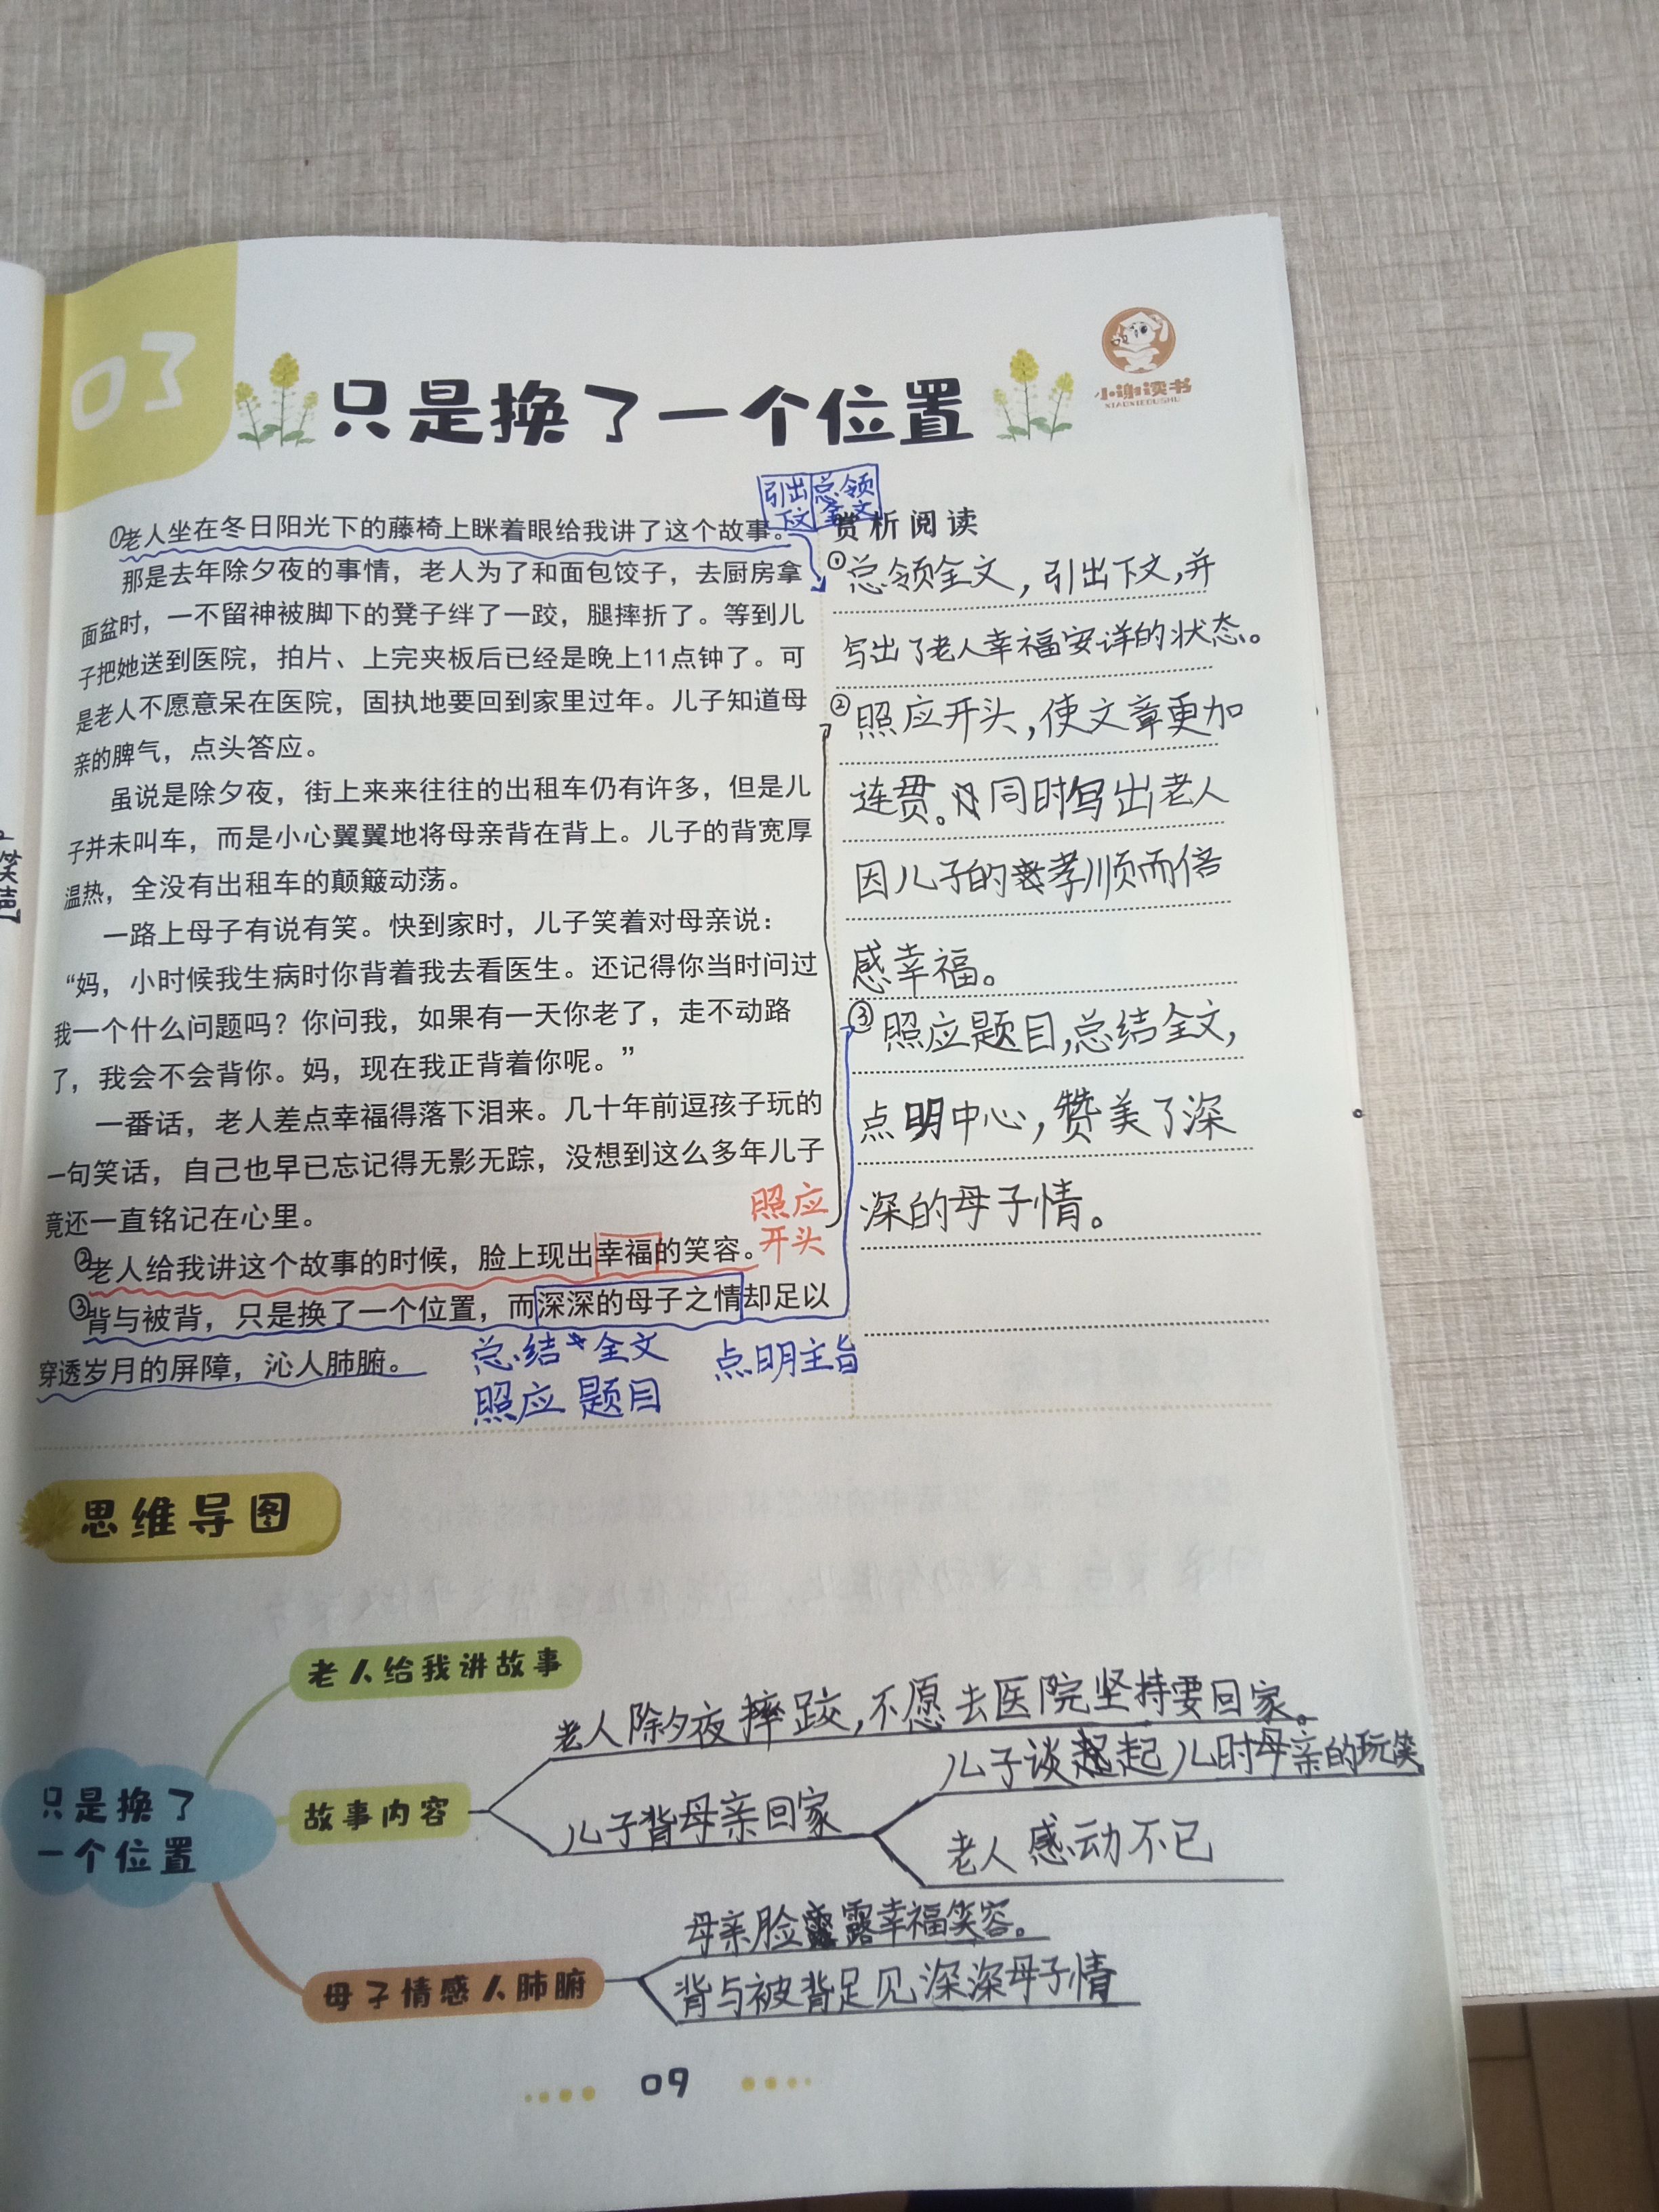 03
只是换了一个位置
小谢读书
XIAOXIEDUSHU
引出下文
总领全文
①老人坐在冬日阳光下的藤椅上眯着眼给我讲了这个故事。
那是去年除夕夜的事情，老人为了和面包饺子，去厨房拿
面盆时，一不留神被脚下的凳子绊了一跤，腿摔折了。等到儿
子把她送到医院，拍片、上完夹板后已经是晚上11点钟了。可
是老人不愿意呆在医院，固执地要回到家里过年。儿子知道母
亲的脾气，点头答应。
虽说是除夕夜，街上来来往往的出租车仍有许多，但是儿
子并未叫车，而是小心翼翼地将母亲背在背上。儿子的背宽厚
温热，全没有出租车的颠簸动荡。
一路上母子有说有笑。快到家时，儿子笑着对母亲说：
“妈，小时候我生病时你背着我去看医生。还记得你当时问过
我一个什么问题吗？你问我，如果有一天你老了，走不动路
了，我会不会背你。妈，现在我正背着你呢。”
一番话，老人差点幸福得落下泪来。几十年前逗孩子玩的
一句笑话，自己也早已忘记得无影无踪，没想到这么多年儿子
竟还一直铭记在心里。
照应
开头
②老人给我讲这个故事的时候，脸上现出幸福的笑容。
③背与被背，只是换了一个位置，而深深的母子之情却足以
穿透岁月的屏障，沁人肺腑。
总结全文
点明主旨
照应题目
赏析阅读
①总领全文，引出下文，并
写出了老人幸福安详的状态。
②照应开头，使文章更加
连贯。同时写出老人
因儿子的孝顺而倍
感幸福。
③照应题目，总结全文，
点明中心，赞美了深
深的母子情。
笑声
思维导图
老人给我讲故事
老人除夕夜摔跤，不愿去医院坚持要回家。
儿子谈起儿时母亲的玩笑
只是换了
一个位置
故事内容
儿子背母亲回家
老人感动不已
母亲脸露幸福笑容。
母子情感人肺腑
背与被背足见深深母子情
09